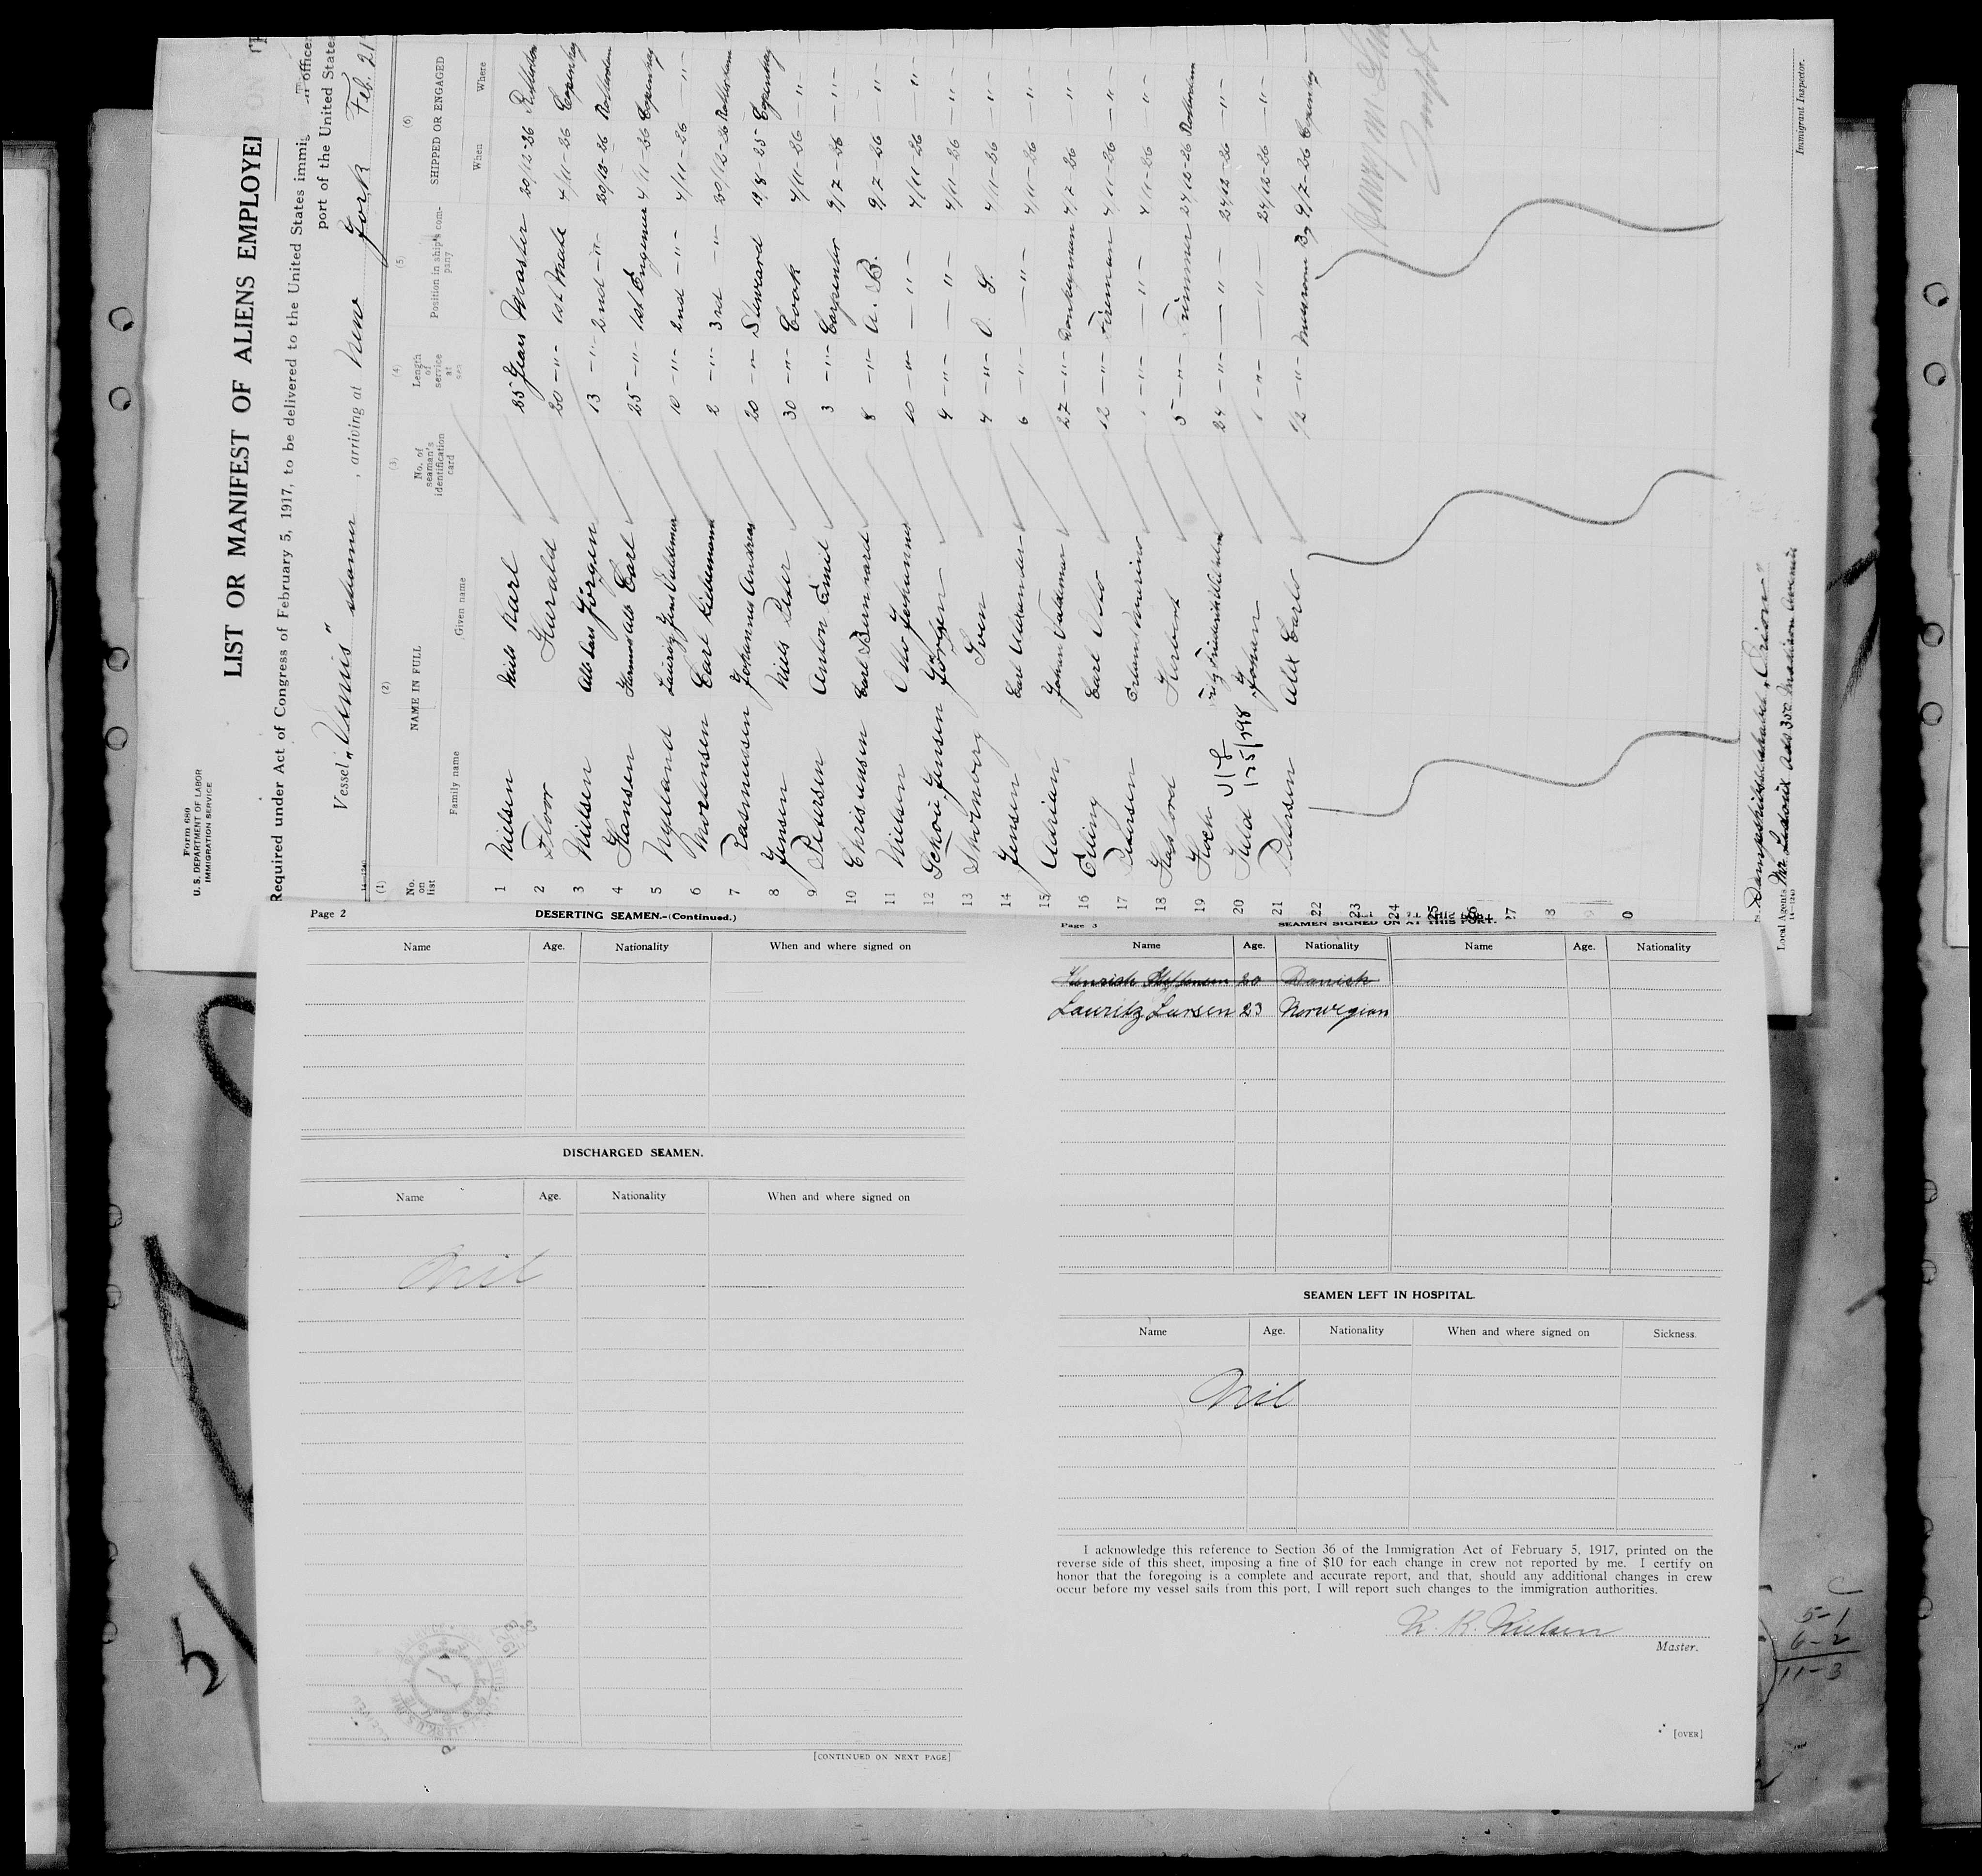 Form 680
U. S. DEPARTMENT OF LABOR
IMMIGRATION SERVICE
LIST OR MANIFEST OF ALIENS EMPLOYED ON
Required under Act of Congress of February 5, 1917, to be delivered to the United States immig officer
port of the United States
Vessel "Venus" steamer , arriving at New York Feb. 21
(1) (2) (3) (4) (5) (6)
No. on list NAME IN FULL No. of seaman's identification card Length of service at sea Position in ship's company SHIPPED OR ENGAGED
Family name Given name When Where
1 Nielsen Niels Karl 35 Years Master 20/12-26 Rotterdam
2 Floor Harald 20 -"- 1st Mate 4/11-26 Copenhag
3 Nielsen Jörgen 13 -"- 2nd -"- 20/12-26 Rotterdam
4 Hansen Carl 25 -"- 1st Engineer 4/11-26 Copenhag
5 Nyland Lauritz Jens Valdemar 10 -"- 2nd -"- 4/11-26 -"-
6 Mortensen Carl 2 -"- 3rd -"- 20/12-26 Rotterdam
7 Rasmussen Johannes Andreas 20 -"- Steward 19/8-25 Copenhag
8 Jensen Niels Peter 30 -"- Cook 4/11-26 -"-
9 Petersen Anton Emil 3 -"- Carpenter 9/7-26 -"-
10 Christensen Carl Bernhard 8 -"- A. B. 9/7-26 -"-
11 Nielsen Otto Johannes 10 -"- -"- 4/11-26 -"-
12 Schou Jensen Jörgen 4 -"- -"- 4/11-26 -"-
13 Sven 4 -"- O. S. 4/11-26 -"-
14 Jensen Carl Alexander 6 -"- -"- 4/11-26 -"-
15 Adrian Johan Valdemar 27 -"- Donkeyman 4/7-26 -"-
16 Elling Carl Otto 12 -"- Fireman 4/11-26 -"-
17 Petersen 1 -"- -"- 4/11-26 -"-
18 Herbert 5 -"- Trimmer 24/12-26 Rotterdam
19 Koch 24 -"- -"- 24/12-26 -"-
20 Held Johan 1 -"- -"- 24/12-26 -"-
21 Petersen Alex Carlo 1/2 -"- Messroom By 9/7-26 Copenhag
22
23
24
25
26
27
8
0
Dampskibsselskabet "Orion"
Local Agents 350 Madison Avenue
Immigrant Inspector.
Page 2
DESERTING SEAMEN.-(Continued.)
Name Age. Nationality When and where signed on
DISCHARGED SEAMEN.
Name Age. Nationality When and where signed on
Nil
[CONTINUED ON NEXT PAGE]
Page 3
SEAMEN SIGNED ON AT THIS PORT.
Name Age. Nationality Name Age. Nationality
Henrich Steffensen 20 Danish
Lauritz Larsen 23 Norwegian
SEAMEN LEFT IN HOSPITAL.
Name Age. Nationality When and where signed on Sickness.
Nil
I acknowledge this reference to Section 36 of the Immigration Act of February 5, 1917, printed on the
reverse side of this sheet, imposing a fine of $10 for each change in crew not reported by me. I certify on
honor that the foregoing is a complete and accurate report, and that, should any additional changes in crew
occur before my vessel sails from this port, I will report such changes to the immigration authorities.
N. K. Nielsen
Master.
[OVER]
5-1
6-2
11-3
5